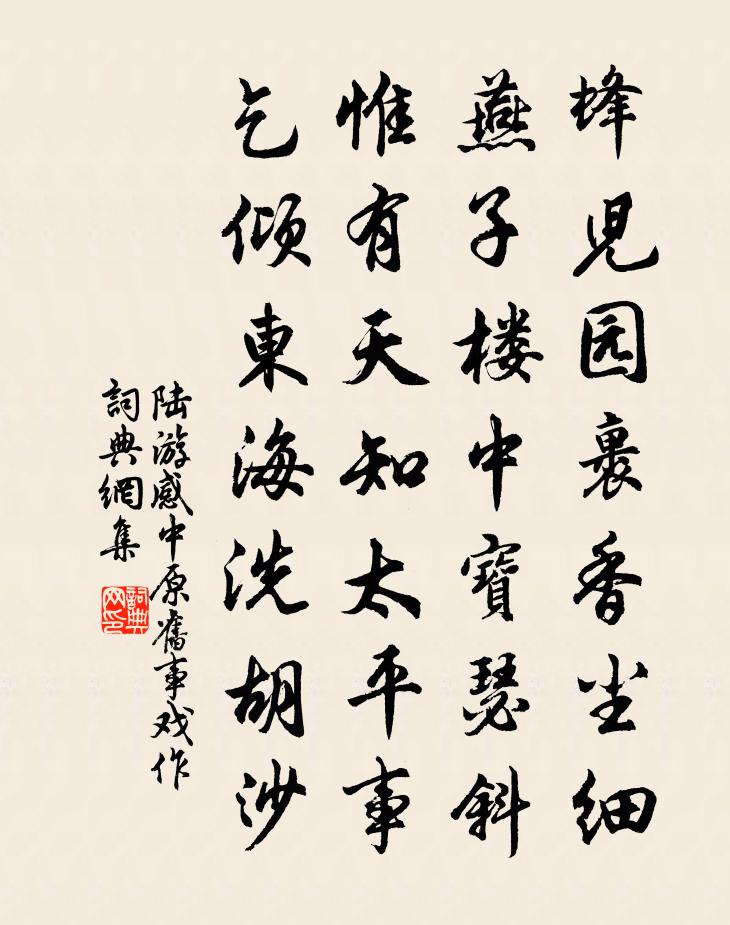 蜂児园裹香尘细
燕子楼中寶瑟斜
惟有天知太平事
乞倾東海洗胡沙
陆游感中原舊事戏作
詞典網集
詞典网印